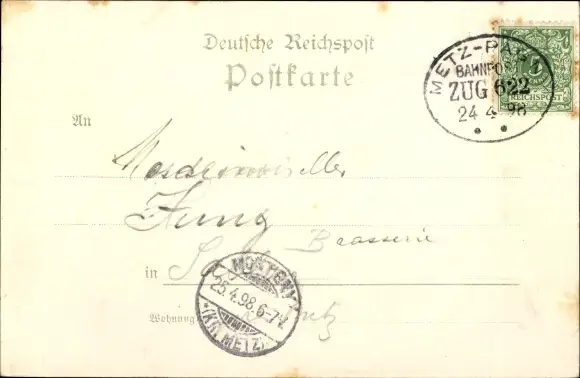 Deutsche Reichspost
Postkarte
METZ-PA
BAHNPO
ZUG 622
24 4 98
REICHSPOST
An
Jung
Brasserie
in
MONTGNY
25.4.98.6-7V.
*(KR. METZ)
Wohnung